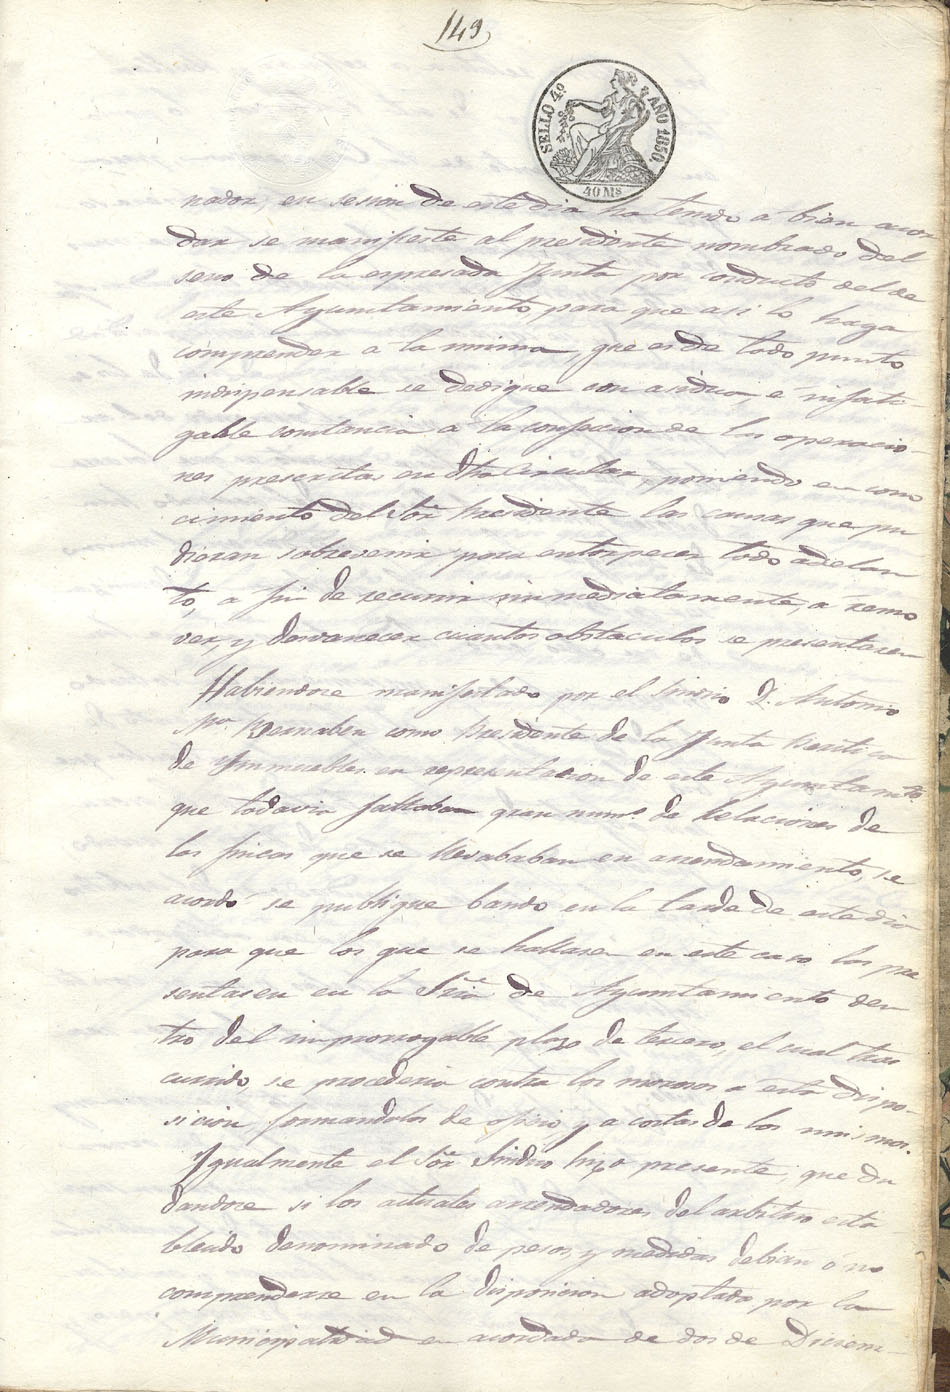 149
SELLO 4º AÑO 1850.
40 Ms
nador, en sesion de este dia ha tenido a bien acor
dar se manifieste al presidente nombrado del
seno de la espresada Junta por conducto del de
este Ayuntamiento, para que asi lo haga
comprender a la misma, que es de todo punto
indispensable se dedique con asidua, e infati-
gable constancia a la confeccion de las operacio-
nes prescritas en dha circular, poniendo en cono
cimiento del Sor Presidente las causas que pu
dieran sobrevenir para entorpecer todo adelan
to, a fin de recurrir inmediatamente, a remo
ver, y desvanecer cuantos obstaculos se presentasen
Habiendose manifestado por el Sindico D. Antonio
Ma Bernabeu como Presidente de la Junta Pericial
de Inmuebles en representacion de este Ayuntamto
que todavia faltaban gran numo de Relaciones de
las fincas que se llevaban en arrendamiento, se
acordó se publique bando en la tarde de este dia
para que los que se hallasen en este caso las pre
sentasen en la Sria de Ayuntamiento den
tro del improrrogable plazo de tercero, el cual tras
currido, se procederia contra los morosos a esta dispo-
sicion formandolas de oficio y a costas de los mismos.
Igualmente el Sor Sindico hizo presente, que du
dandose si los actuales arrendadores del arbitrio esta
blecido denominado de pesos, y medidas debian ó no
comprenderse en la disposicion adoptada por la
Municipalidad en acordado de dos de Diciem-